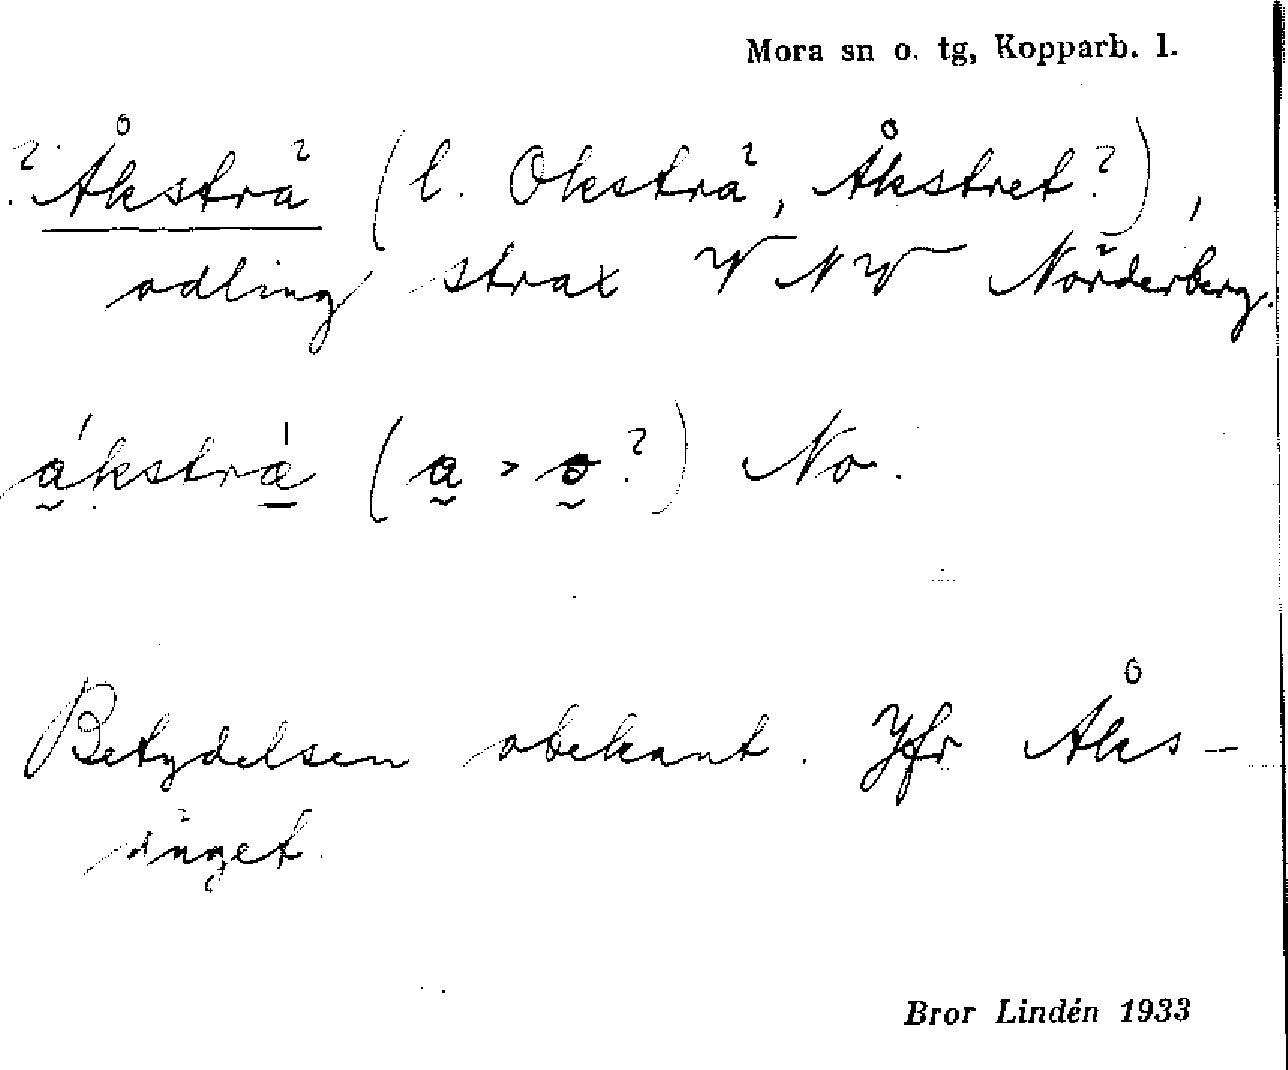 Mora sn o. tg, Kopparb. l.
? Åksträ (l. Oksträ, Åkstret?),
odling strax VNV Norderberg.
ákstrá̱ (a > o?) No.
Betydelsen obekant. Jfr Åks-
änget.
Bror Lindén 1933